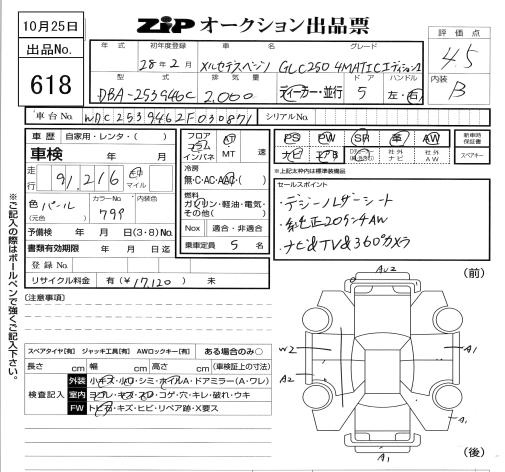 10月25日
出品No.
618
ZIP オークション出品票
評価点
4.5
内装
B
年式
初年度登録
車名
グレード
28年2月
メルセデスベンツ
GLC250 4MATIC エディション1
型式
排気量
ドア
ハンドル
DBA-253946C
2,000
ディーラー・並行
5
左・右
車台No.
WDC2539462F030871
シリアルNo.
車歴
自家用・レンタ・( )
車検
年 月
走行
91,216
km
マイル
色
パール
(元色)
カラーNo.
799
内装色
予備検 年 月 日(3・8)No.
書類有効期限 年 月 日迄
登録No.
リサイクル料金 有(¥17,120)無
フロア
コラム
インパネ
AT
MT
速
冷房
無・C・AC・AAC・( )
燃料
ガソリン・軽油・電気・
その他( )
Nox
適合・非適合
乗車定員 5 名
PS
PW
SR
革
AW
ナビ
エアB
社外
ナビ
社外
AW
新車時
保証書
スペアキー
※上記太枠内は標準装備品
セールスポイント
・デジーノレザーシート
・純正20インチAW
・ナビ&TV&360°カメラ
(注意事項)
スペアタイヤ[有] ジャッキ工具[有] AWロックキー[有] ある場合のみ○
長さ cm 幅 cm 高さ cm (車検証上の寸法)
検査記入
外装
小キズ・小凹・シミ・ホイルA・ドアミラー(A・ワレ)
室内
ヨゴレ・キズ・スレ・コゲ・穴・キレ・破れ・ウキ
FW
トビ石・キズ・ヒビ・リペア跡・X要ス
※ご記入の際はボールペンで強くご記入下さい。
(前)
AU2
W2
A2
A1
A1
A1
(後)